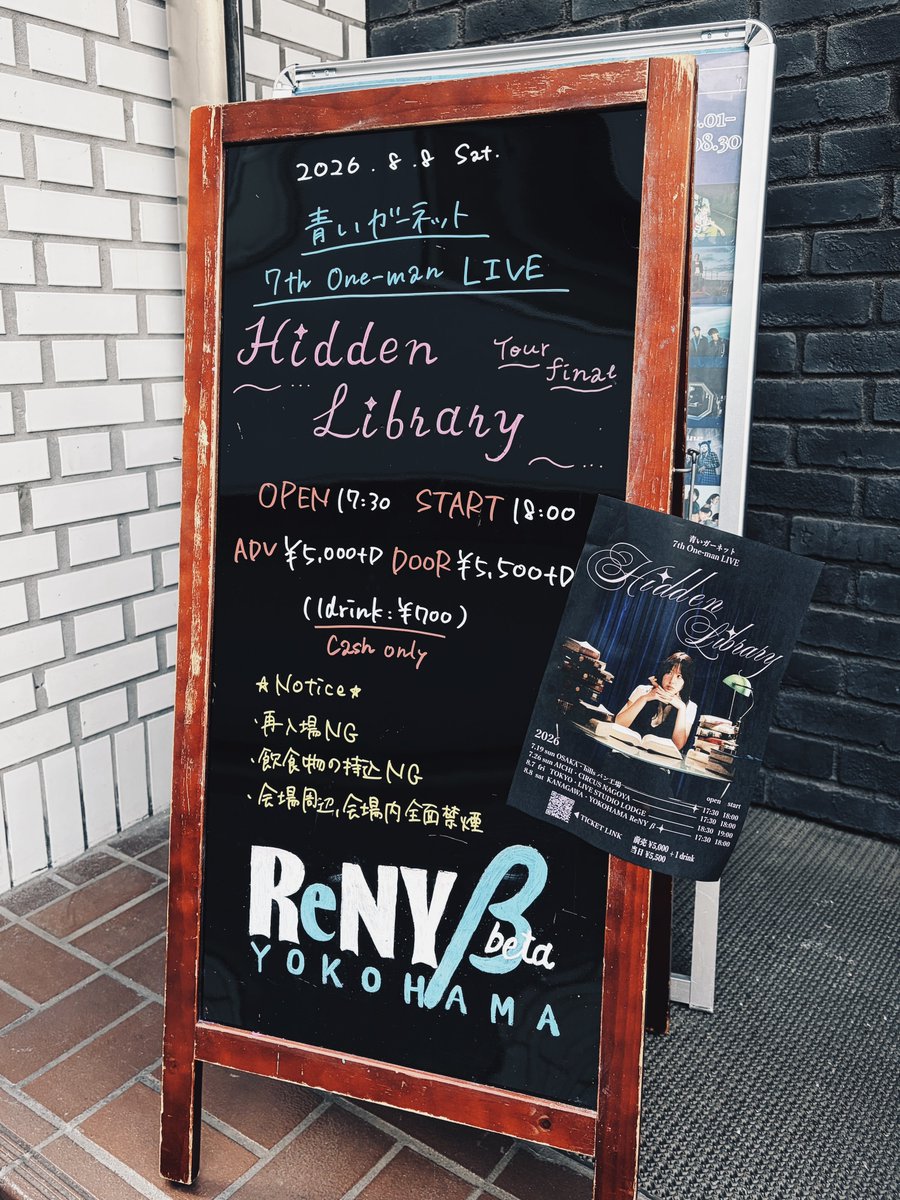 2026.8.8 Sat.
青いガーネット
7th One-man LIVE
Hidden
Tour final
Library
OPEN 17:30 START 18:00
ADV ¥5,000+D DOOR ¥5,500+D
(1drink:¥700)
Cash only
☆Notice★
・再入場NG
・飲食物の持込NG
・会場周辺,会場内全面禁煙
ReNY β beta
YOKOHAMA
青いガーネット
7th One-man LIVE
Hidden
Library
2026
open start
7.19 sun OSAKA・hills パン工場 17:30 18:00
7.26 sun AICHI・CIRCUS NAGOYA 17:30 18:00
8.7 fri TOKYO・LIVE STUDIO LODGE 18:30 19:00
8.8 sat KANAGAWA・YOKOHAMA ReNY β 17:30 18:00
◀TICKET LINK
前売 ¥5,000 +1 drink
当日 ¥5,500
.01-
08.30